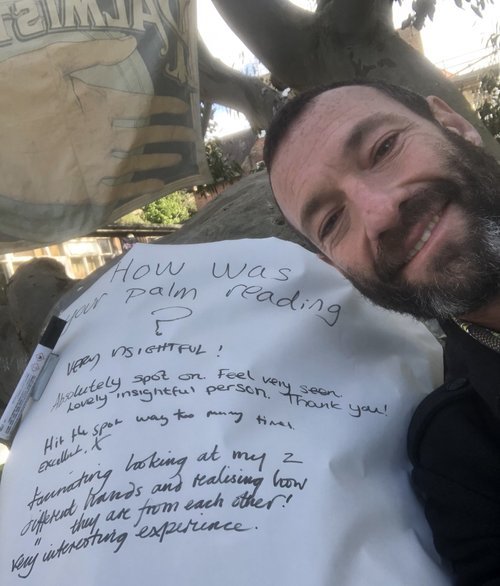 PALMISTRY
How was
your palm reading
?
VERY INSIGHTFUL!
Absolutely spot on. Feel very seen.
Lovely insightful person. Thank you!
Hit the spot way too many times.
Excellent. X
Fascinating looking at my 2
different hands and realising how
" they are from each other!
very interesting experience.